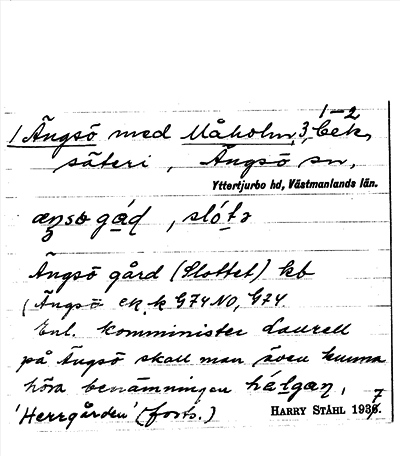 1-2
1 Ängsö med Måholm, 3, bek,
säteri, Ängsö sn,
Yttertjurbo hd, Västmanlands län.
gå̱d, sló̱tə
Ängsö gård (Slottet) kb
(Ängsö ek. k G74 NO, G74
Enl. komminister Laurell
på Ängsö skall man även kunna
höra benämningen
'Herrgården' (forts.) HARRY STÅHL 1936. 7